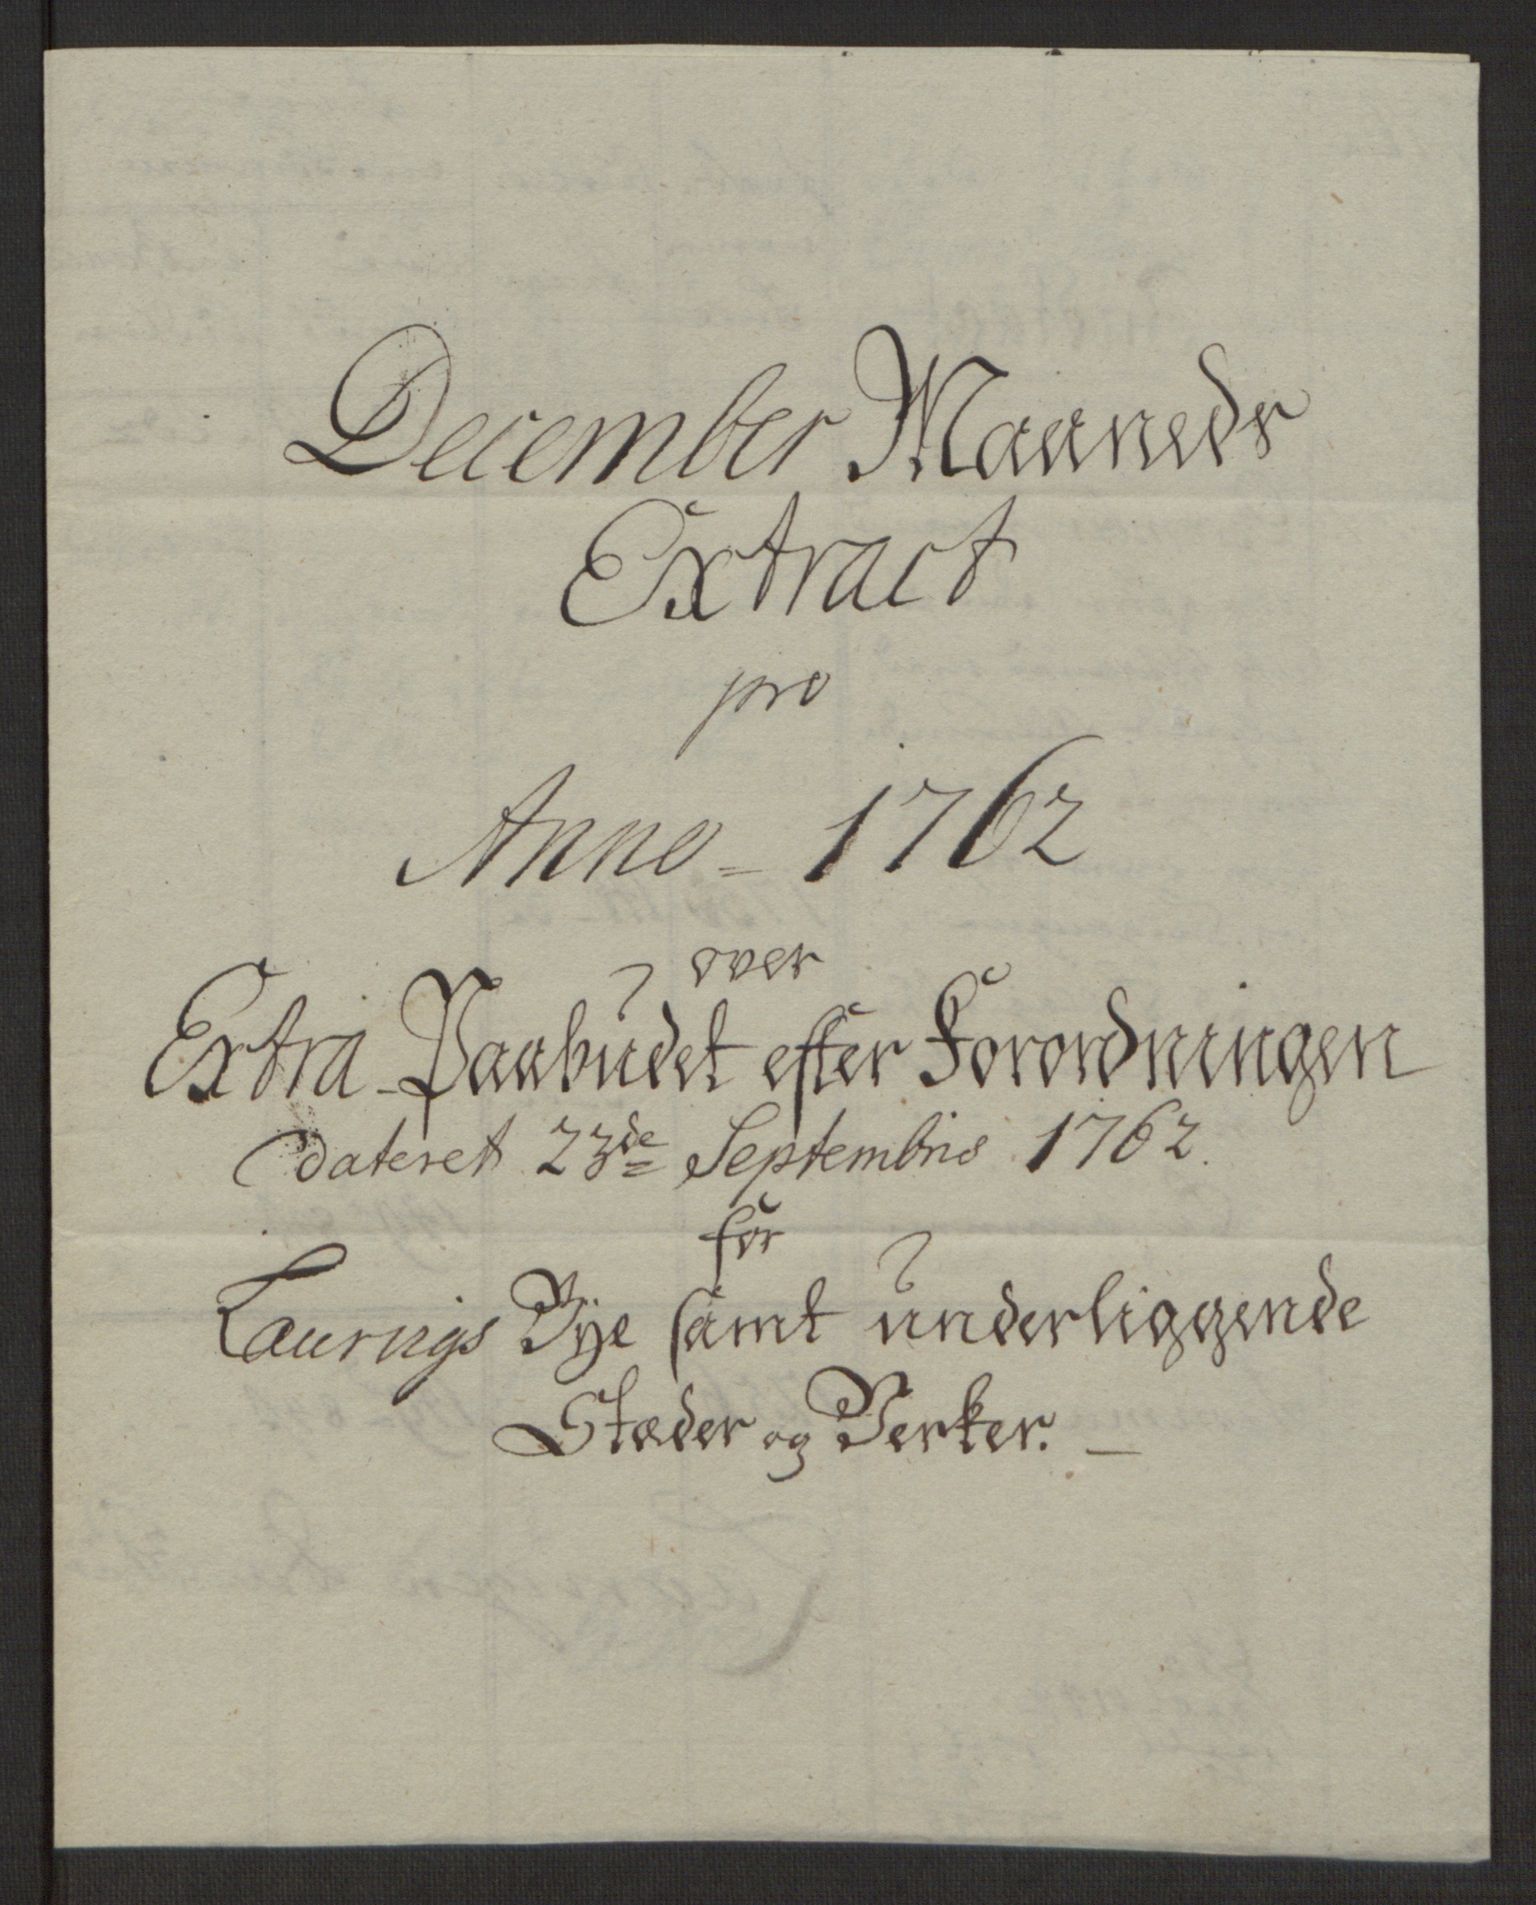 December Maaneds
Extract
pro
Anno = 1762
over
Extra Paabudet efter Forordningen
dateret 23de Septembris 1762.
for
Laurvigs Bye samt underliggende
Stæder og Verker. —